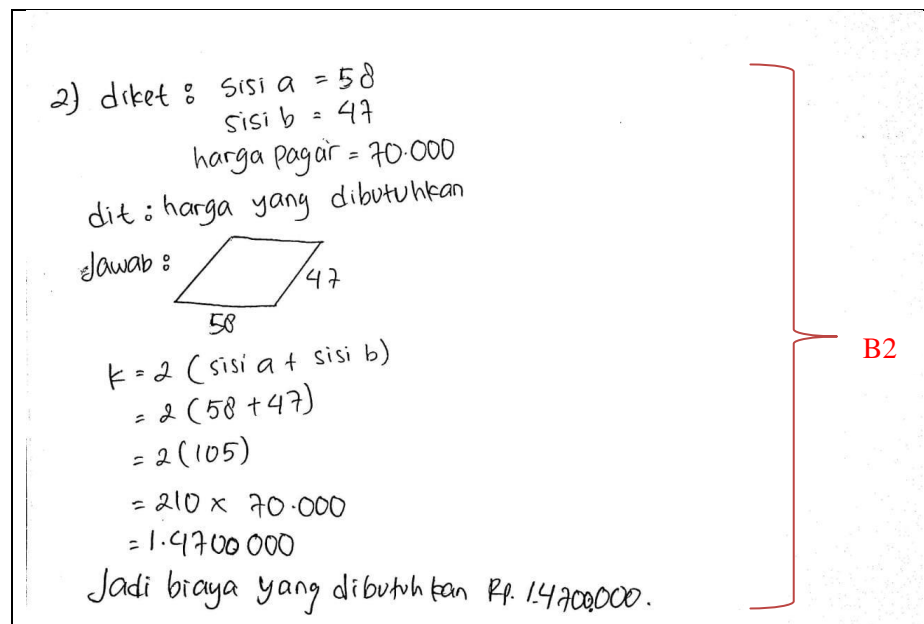 2) diket : sisi a = 58
sisi b = 47
harga pagar = 70.000
dit : harga yang dibutuhkan
Jawab :
47
58
k = 2 (sisi a + sisi b)
= 2 (58 + 47)
= 2 (105)
= 210 x 70.000
= 1.4700 000
Jadi biaya yang dibutuhkan Rp. 1.4700.000.
B2